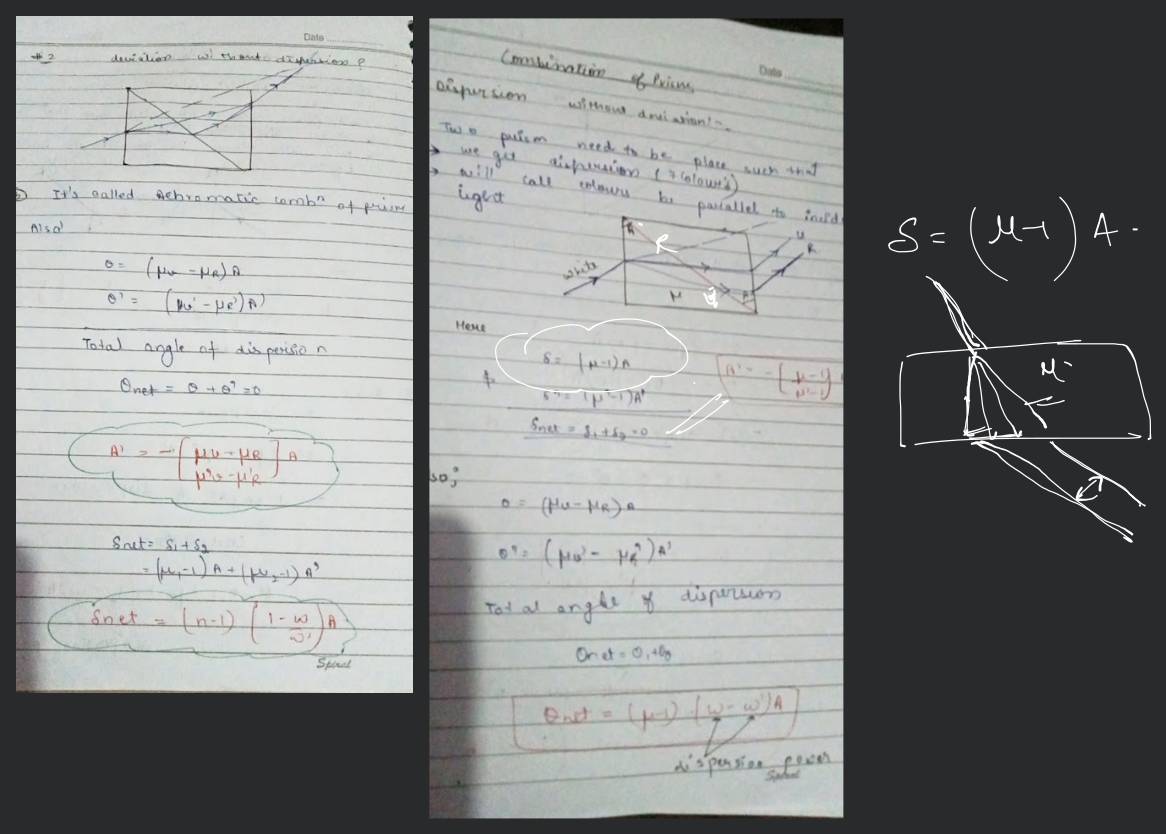 Date
#2 deviation without dispersion?
It's called Achromatic combⁿ of prism
Also'
θ = (μv - μR) A
θ' = (μv' - μR') A'
Total angle of dispersion
θnet = θ + θ' = 0
A' = - [ μv - μR / μ'v - μ'R ] A
δnet = δ1 + δ2
= (μ1 - 1) A + (μ2 - 1) A'
δnet = (n-1) (1 - ω/ω') A
Spiral
Combination of Prism
Date
Dispersion without deviation:-
Two prism need to be place such that
→ we get dispersion (7 colours)
→ will call colours be parallel to incid
light
A
R
White
μ
A'
R
Here
δ = (μ-1) A
& δ' = (μ'-1) A'
δnet = δ1 + δ2 = 0
A' = - [ μ-1 / μ'-1 ]
so;
θ = (μv - μR) A
θ' = (μv' - μR') A'
Total angle of dispersion
θnet = θ1 + θ2
θnet = (μ-1) (ω - ω') A
dispersion power
Spiral
δ = (μ-1) A .
μ